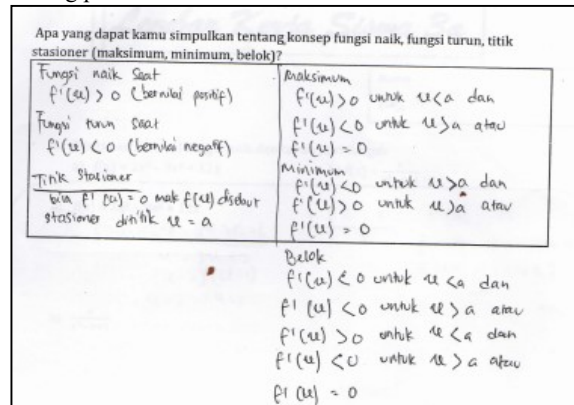 Apa yang dapat kamu simpulkan tentang konsep fungsi naik, fungsi turun, titik
stasioner (maksimum, minimum, belok)?
Fungsi naik saat
f'(x) > 0 (bernilai positif)
Fungsi turun saat
f'(x) < 0 (bernilai negatif)
Titik Stasioner
bila f'(x) = 0 mak f(x) disebut
stasioner dititik x = a
Maksimum
f'(x) > 0 untuk x < a dan
f'(x) < 0 untuk x > a atau
f'(x) = 0
Minimum
f'(x) < 0 untuk x > a dan
f'(x) > 0 untuk x > a atau
f'(x) = 0
Belok
f'(x) < 0 untuk x < a dan
f'(x) < 0 untuk x > a atau
f'(x) > 0 untuk x < a dan
f'(x) < 0 untuk x > a atau
f'(x) = 0